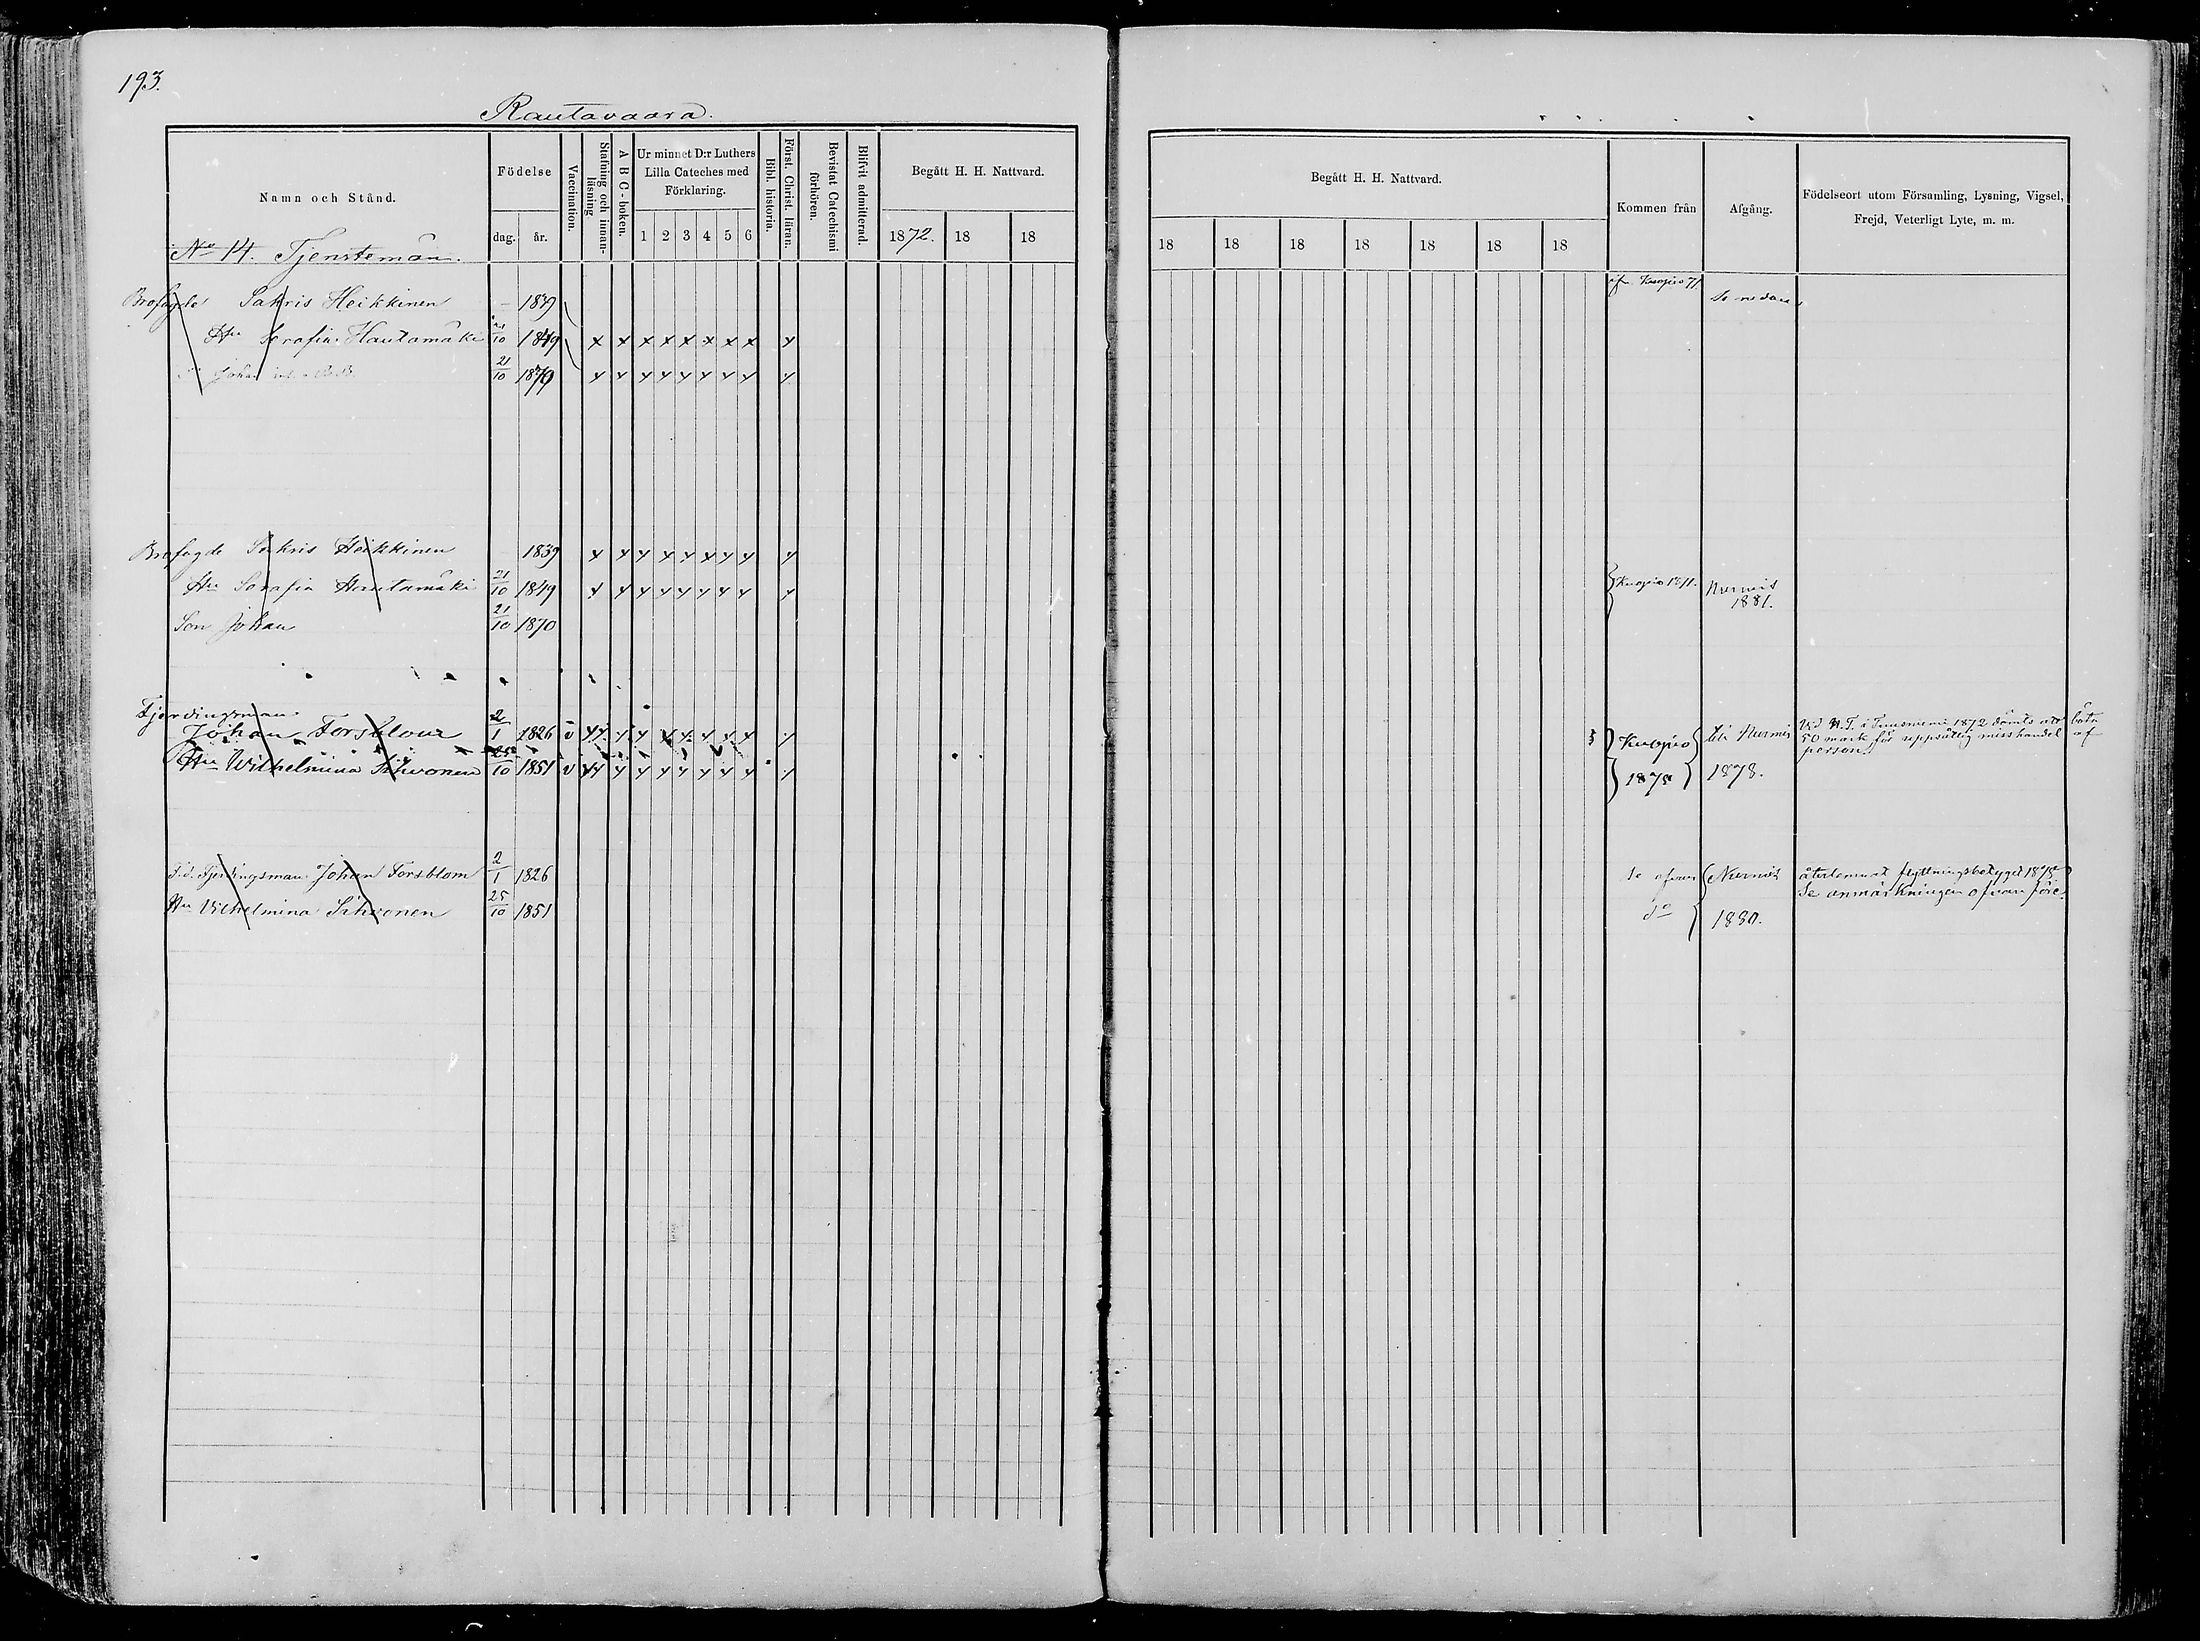 193.
Rautavaara.
Namn och Stånd.
Födelse
dag.
år.
Vaccination.
Stafning och innan-
läsning
A B C-boken.
Ur minnet D:r Luthers
Lilla Cateches med
Förklaring.
1 2 3 4 5 6
Bibl. historia.
Först. Christ. läran.
Bevistat Catechismi
förhören.
Blifvit admitterad.
Begått H. H. Nattvard.
1872. 18 18
Begått H. H. Nattvard.
18 18 18 18 18 18 18
Kommen från
Afgång.
Födelseort utom Församling, Lysning, Vigsel,
Frejd, Veterligt Lyte, m. m.
No 14. Tjenstemän.
Brofogde Sakris Heikkinen 1839 Kuopio 71. Se nedan
Hu Serafia Hautamäki 21/10 1849 x x x x x x x x x
Johan 21/10 1870 x x x x x x x x x
Brofogde Sakris Heikkinen 1839 x x x x x x x x x
Hu Serafia Hautamäki 21/10 1849 x x x x x x x x x Kuopio 1871. Nurmis
1881.
Son Johan 21/10 1870
Fjerdingsman
Johan Forsblom 2/1 1826 v Kuopio till Nurmis
Hu Wilhelmina Sihvonen 25/10 1851 v 1878 1878.
Vid N. T. i Tuusniemi 1872 dömts att böta
50 mark för uppsåtlig misshandel af
person.
T.d. Fjerdingsman Johan Forsblom 2/1 1826 se ofvan Nurmis återlemnat flyttningsbetyget 1878
Hu Vilhelmina Sihvonen 25/10 1851 do 1880. Se anmärkningen ofvanföre.